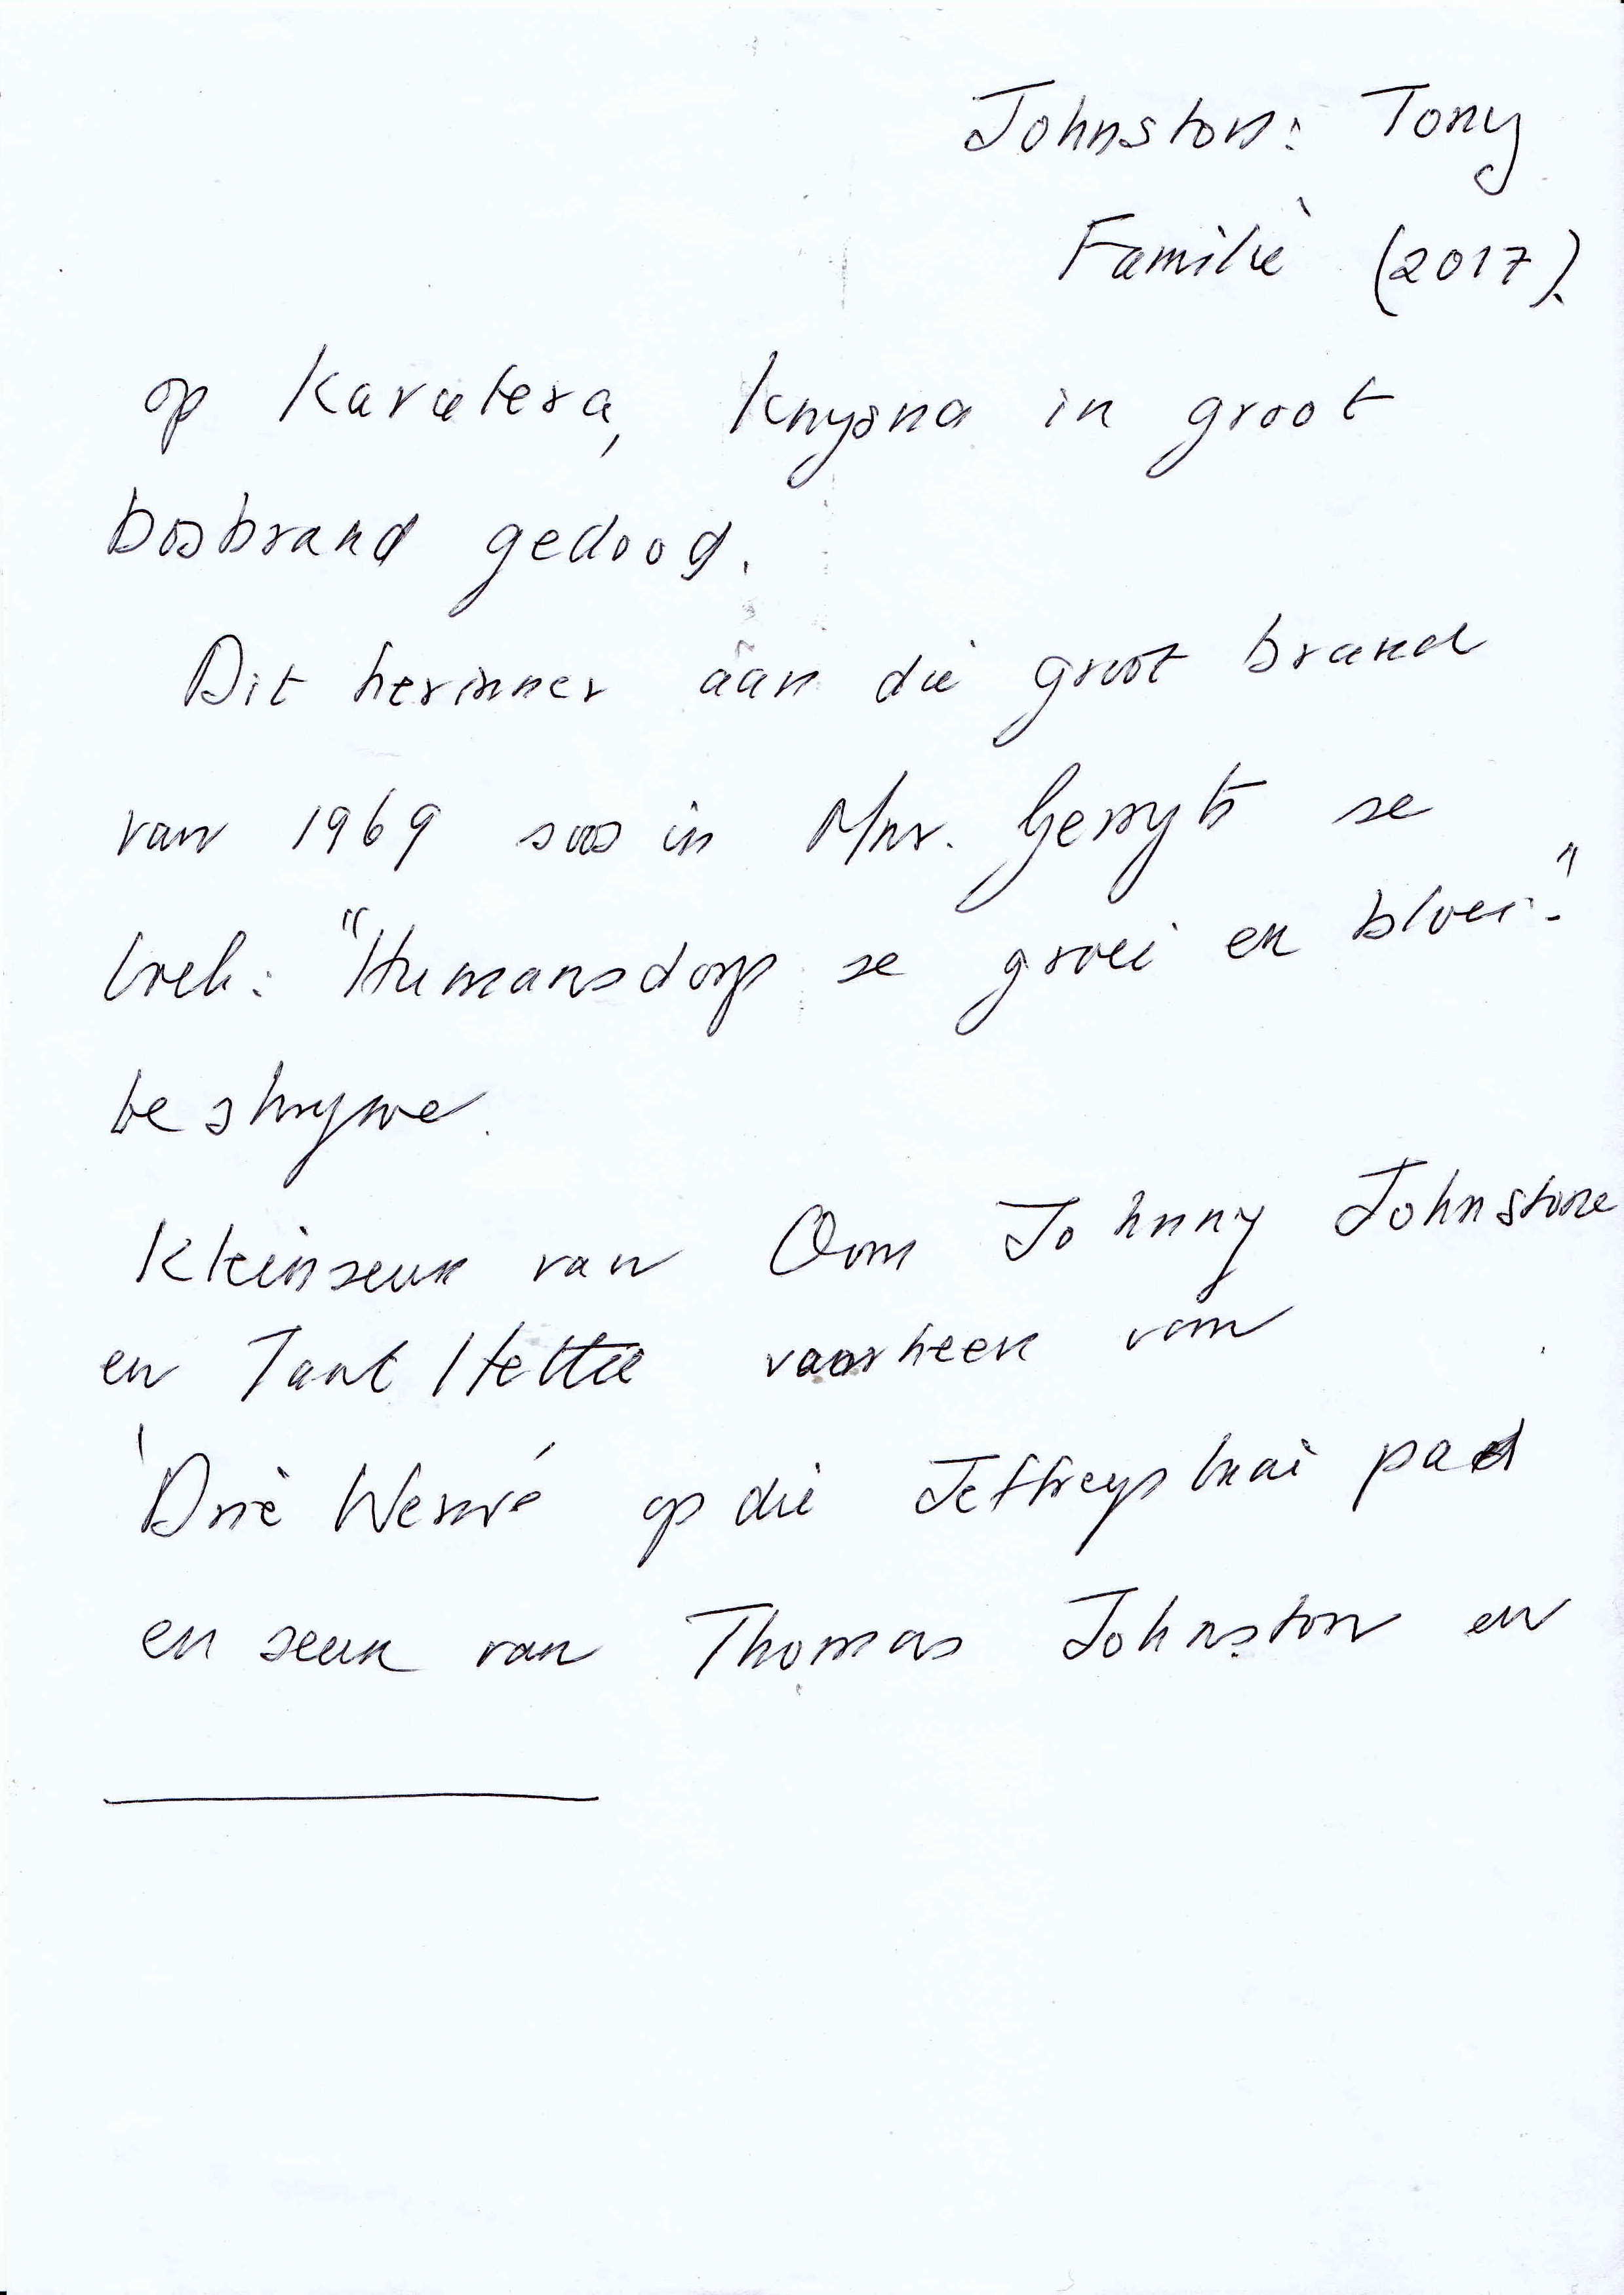 Johnston: Tony
Familie (2017).
op Karatera, Knysna in groot
bosbrand gedood.
Dit herinner aan die groot brand
van 1969 soos in Mnr. Gerryts se
boek: "Humansdorp se groei en bloei."
beskrywe.
Kleinseun van Oom Johnny Johnstone
en Tant Hettie voorheen van
'Drie Werwe' op die Jeffreysbaai pad
en seun van Thomas Johnston en